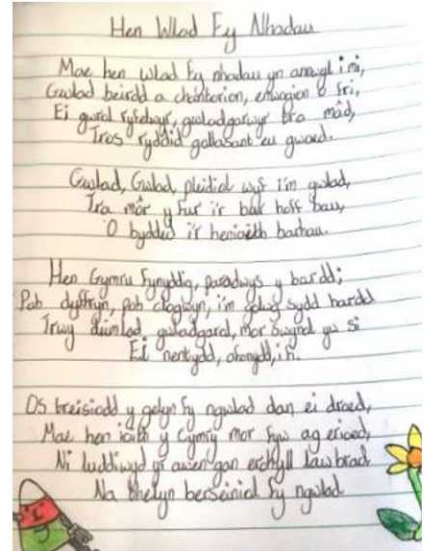 Hen Wlad Fy Nhadau
Mae hen wlad fy nhadau yn annwyl i mi,
Gwlad beirdd a chantorion, enwogion o fri,
Ei gwrol ryfelwyr, gwladgarwyr tra mâd,
Tros ryddid gollasant eu gwaed.
Gwlad, Gwlad, pleidiol wyf i'm gwlad,
Tra môr y fur i'r bur hoff bau,
O bydded i'r heniaith barhau.
Hen Gymru fynyddig, paradwys y bardd;
Pob dyffryn, pob clogwyn, i'm golwg sydd hardd
Trwy deimlad gwladgarol, mor swynol yw si
Ei nentydd, afonydd, i fi.
Os treisiodd y gelyn fy ngwlad dan ei droed,
Mae hen iaith y Cymry mor fyw ag erioed,
Ni luddiwyd yr awen gan erchyll law brad
Na thelyn berseiniol fy ngwlad